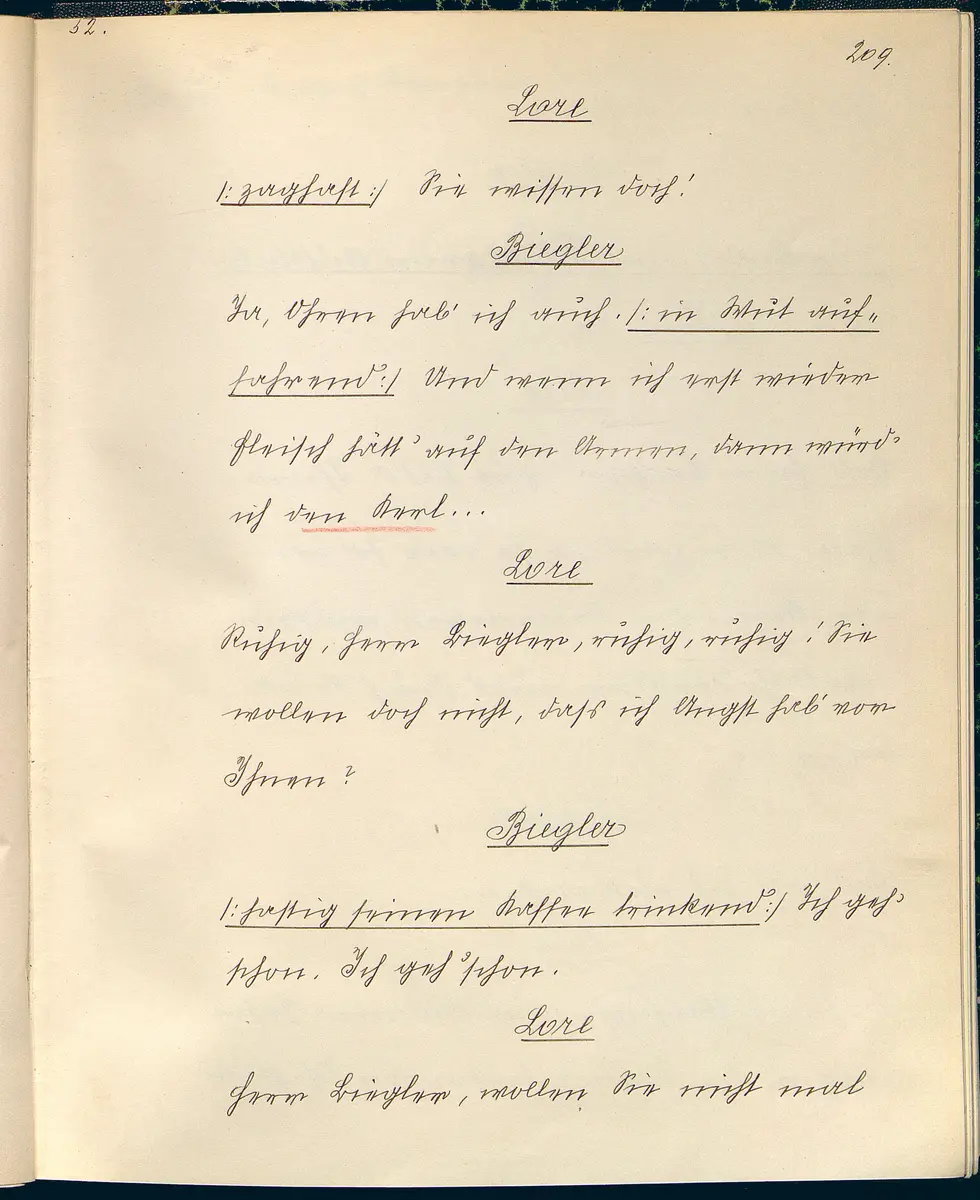 52.
209.
Lore
/: zaghaft :/ Sie wissen doch!
Biegler
Ja, Ohren hab' ich auch. /: in Wut auf-
fahrend :/ Und wenn ich erst wieder
Fleisch hätt' auf den Armen, dann würd'
ich den Kerl...
Lore
Ruhig, Herr Biegler, ruhig, ruhig! Sie
wollen doch nicht, dass ich Angst hab' vor
Ihnen?
Biegler
/: hastig seinen Kaffee trinkend :/ Ich geh'
schon. Ich geh' schon.
Lore
Herr Biegler, wollen Sie nicht mal